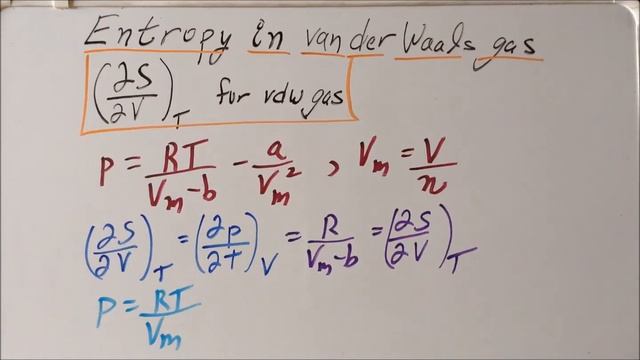 Entropy in van der Waals gas
(∂S/∂V)_T for vdw gas
P = RT/(V_m-b) - a/V_m², V_m = V/n
(∂S/∂V)_T = (∂p/∂T)_V = R/(V_m-b) = (∂S/∂V)_T
P = RT/V_m